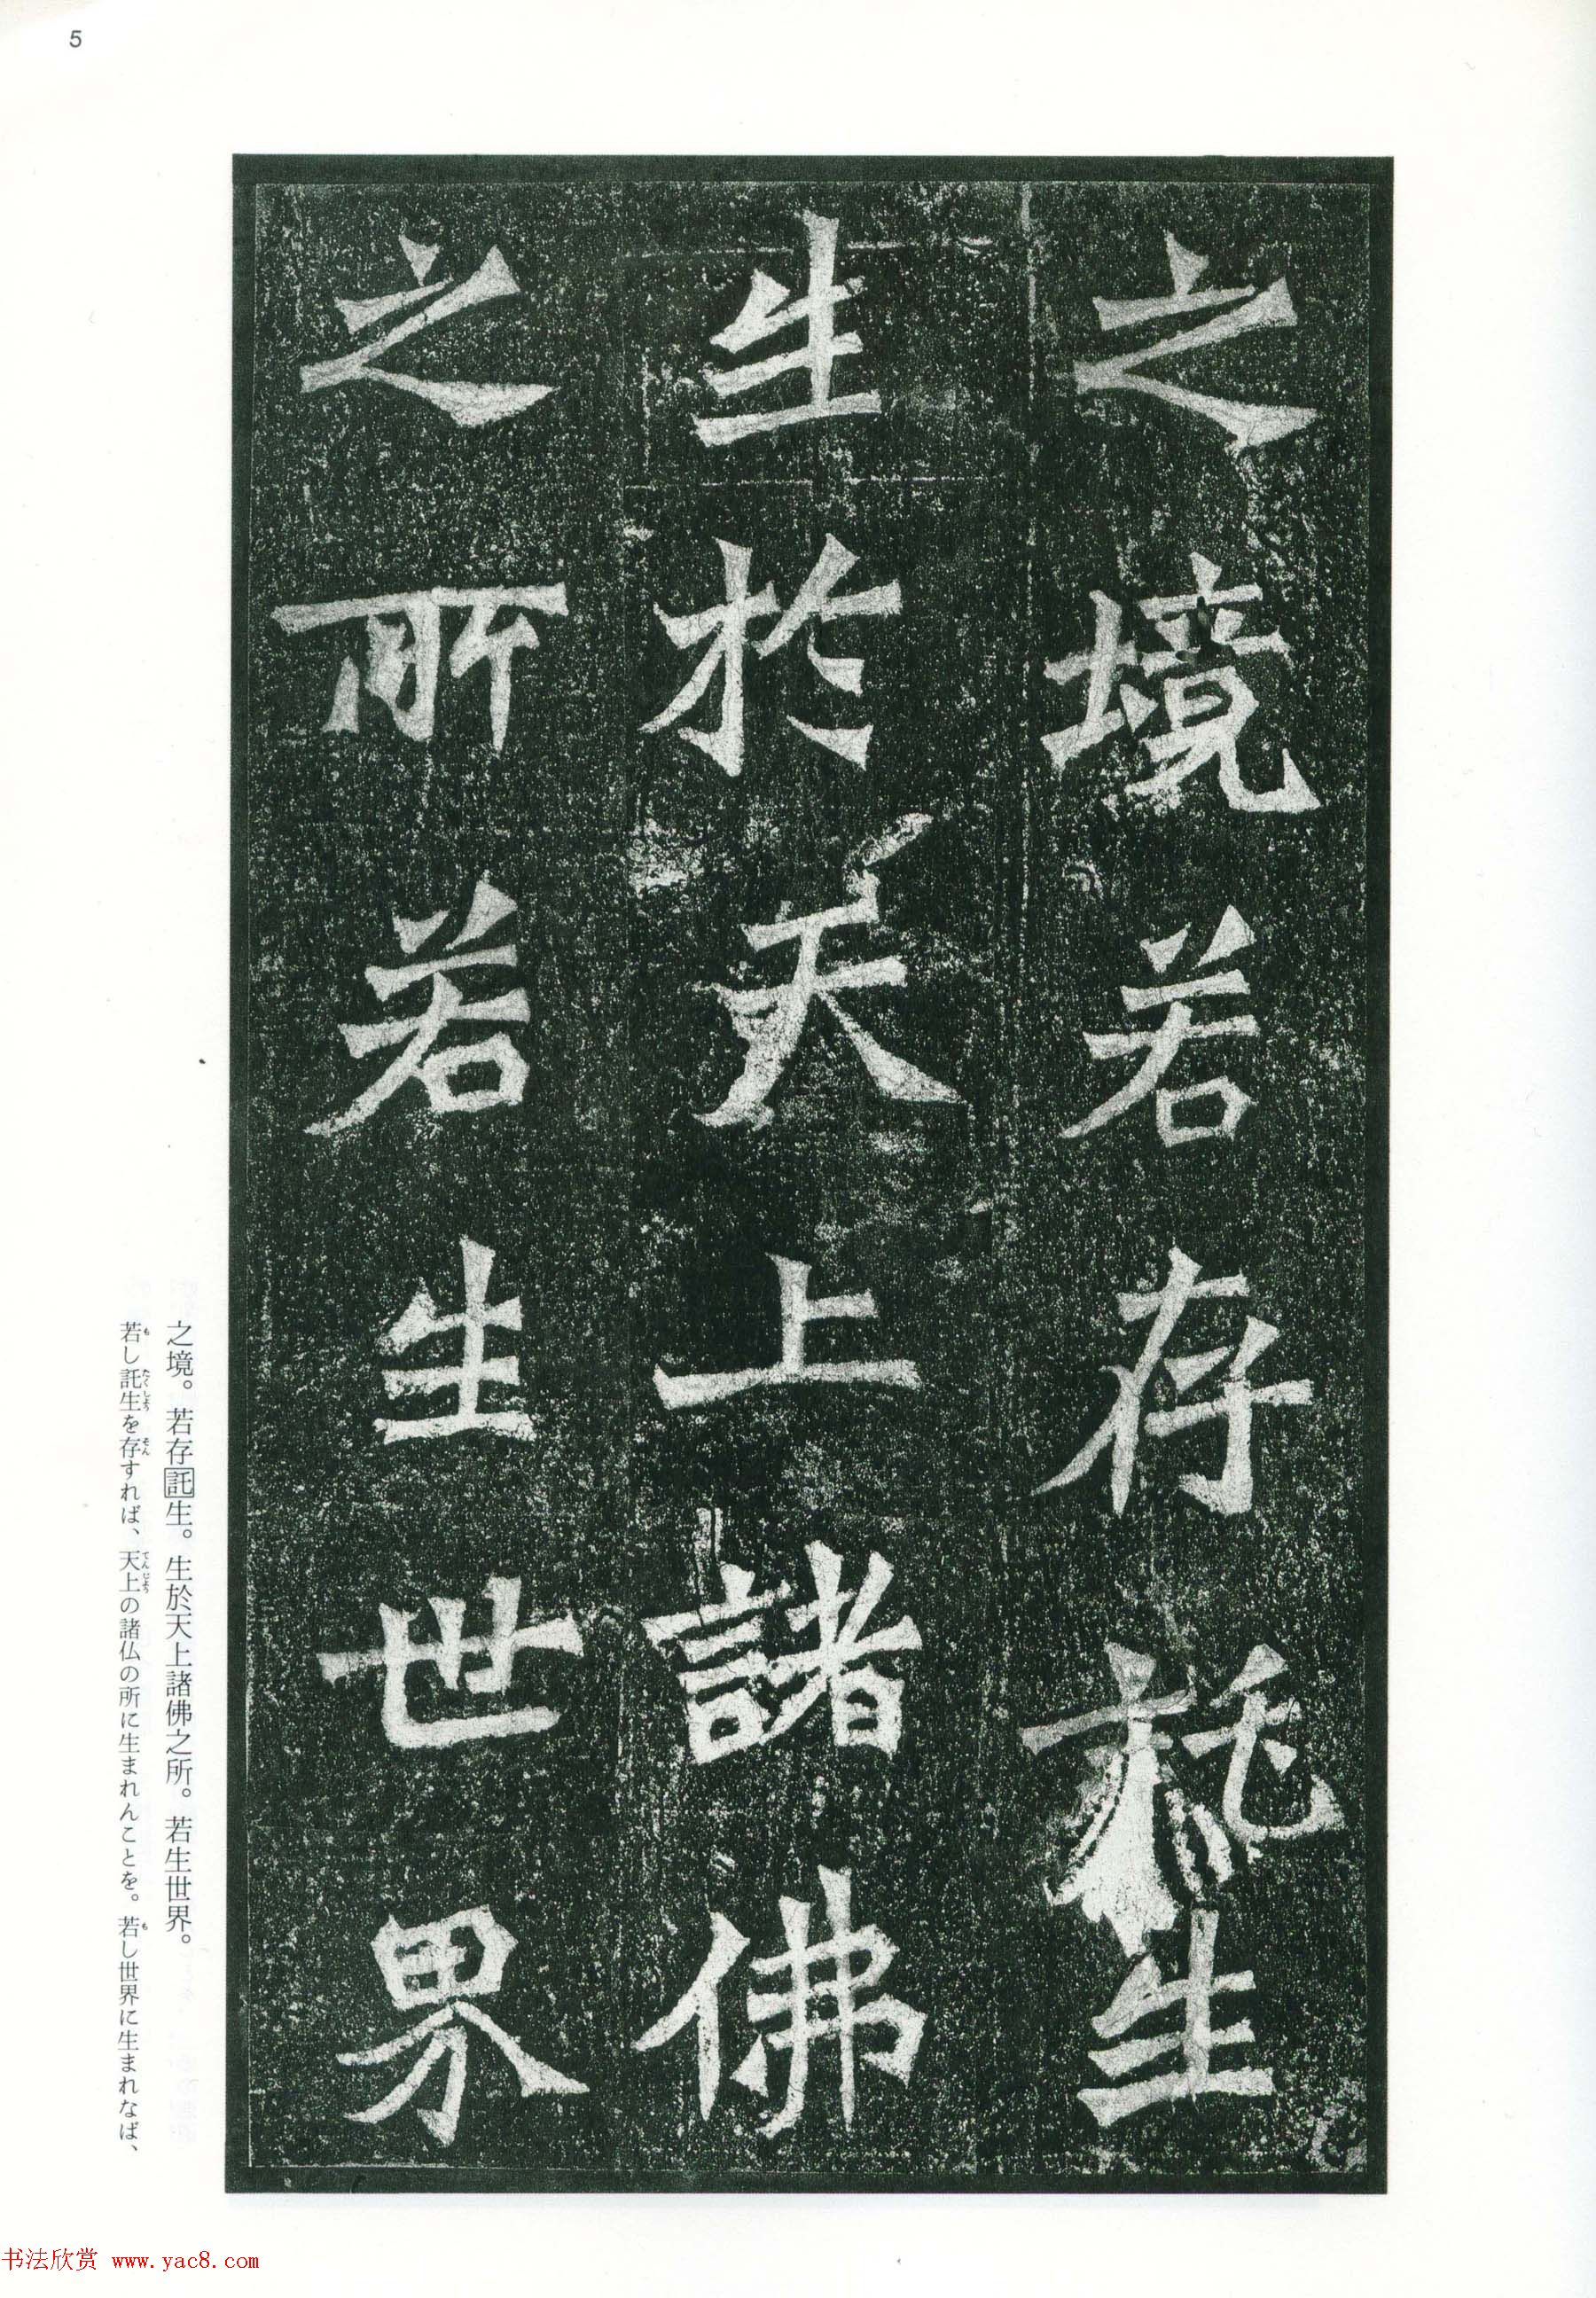 5
之境若存託生
生於天上諸佛
之所若生世界
之境。若存託生。生於天上諸佛之所。若生世界。
若し託生を存すれば、天上の諸仏の所に生まれんことを。若し世界に生まれなば、
も たくしょう そん てんじょう も
书法欣赏 www.yac8.com